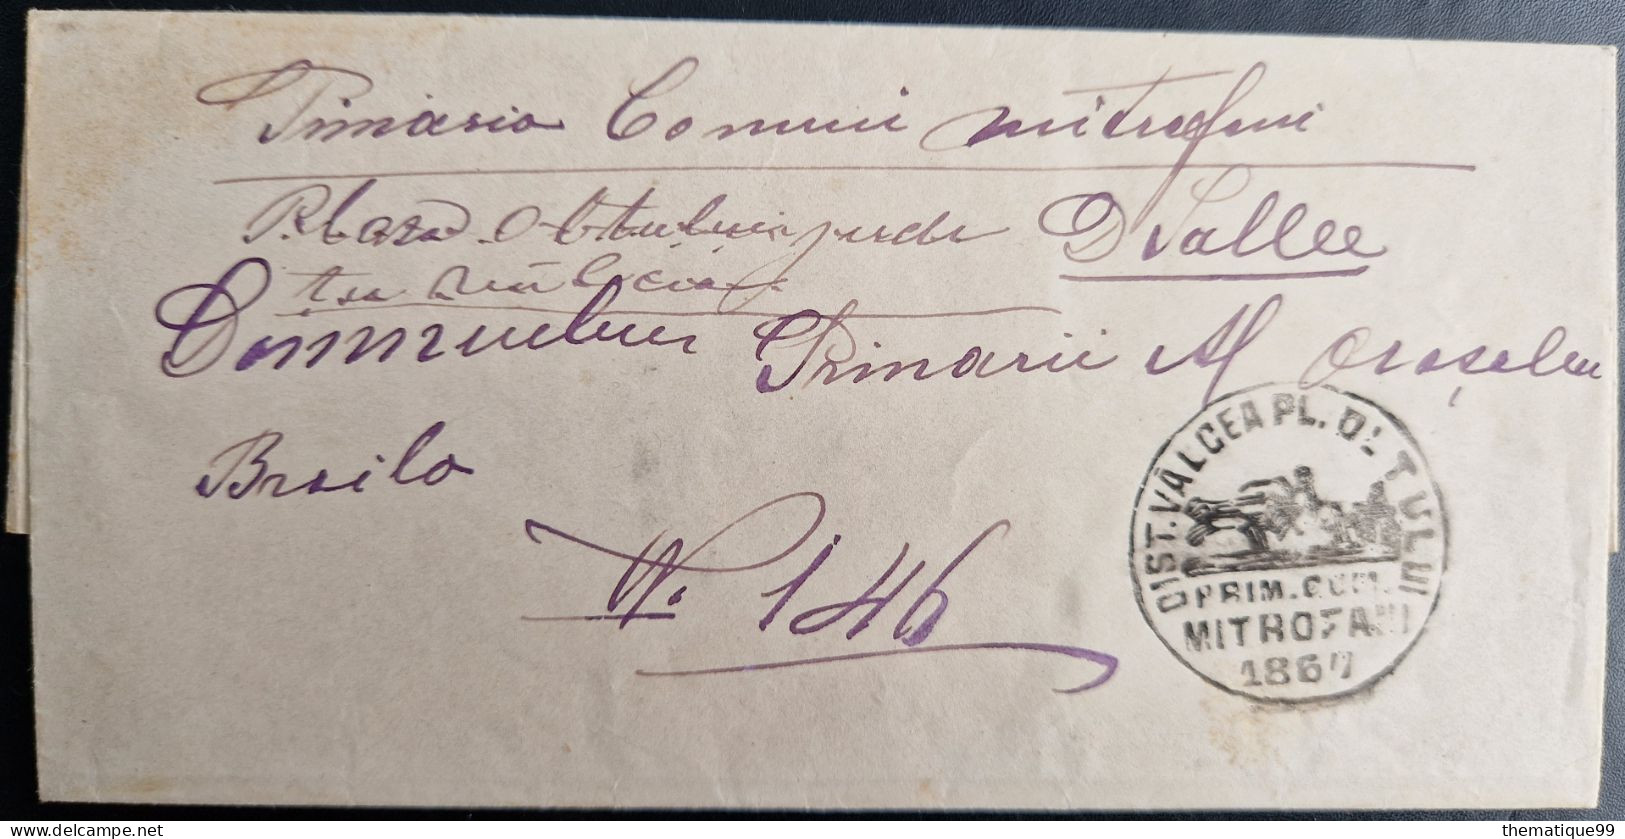 Primaria Comuni Mitrofani
Plasa Oltului jude Vallce
Domnului Primarii Al Orașului
Braila
No. 146
DIST. VÂLCEA PL. OLTULUI
PRIM. COM.
MITROFANI
1867
delcampe.net
thematique99